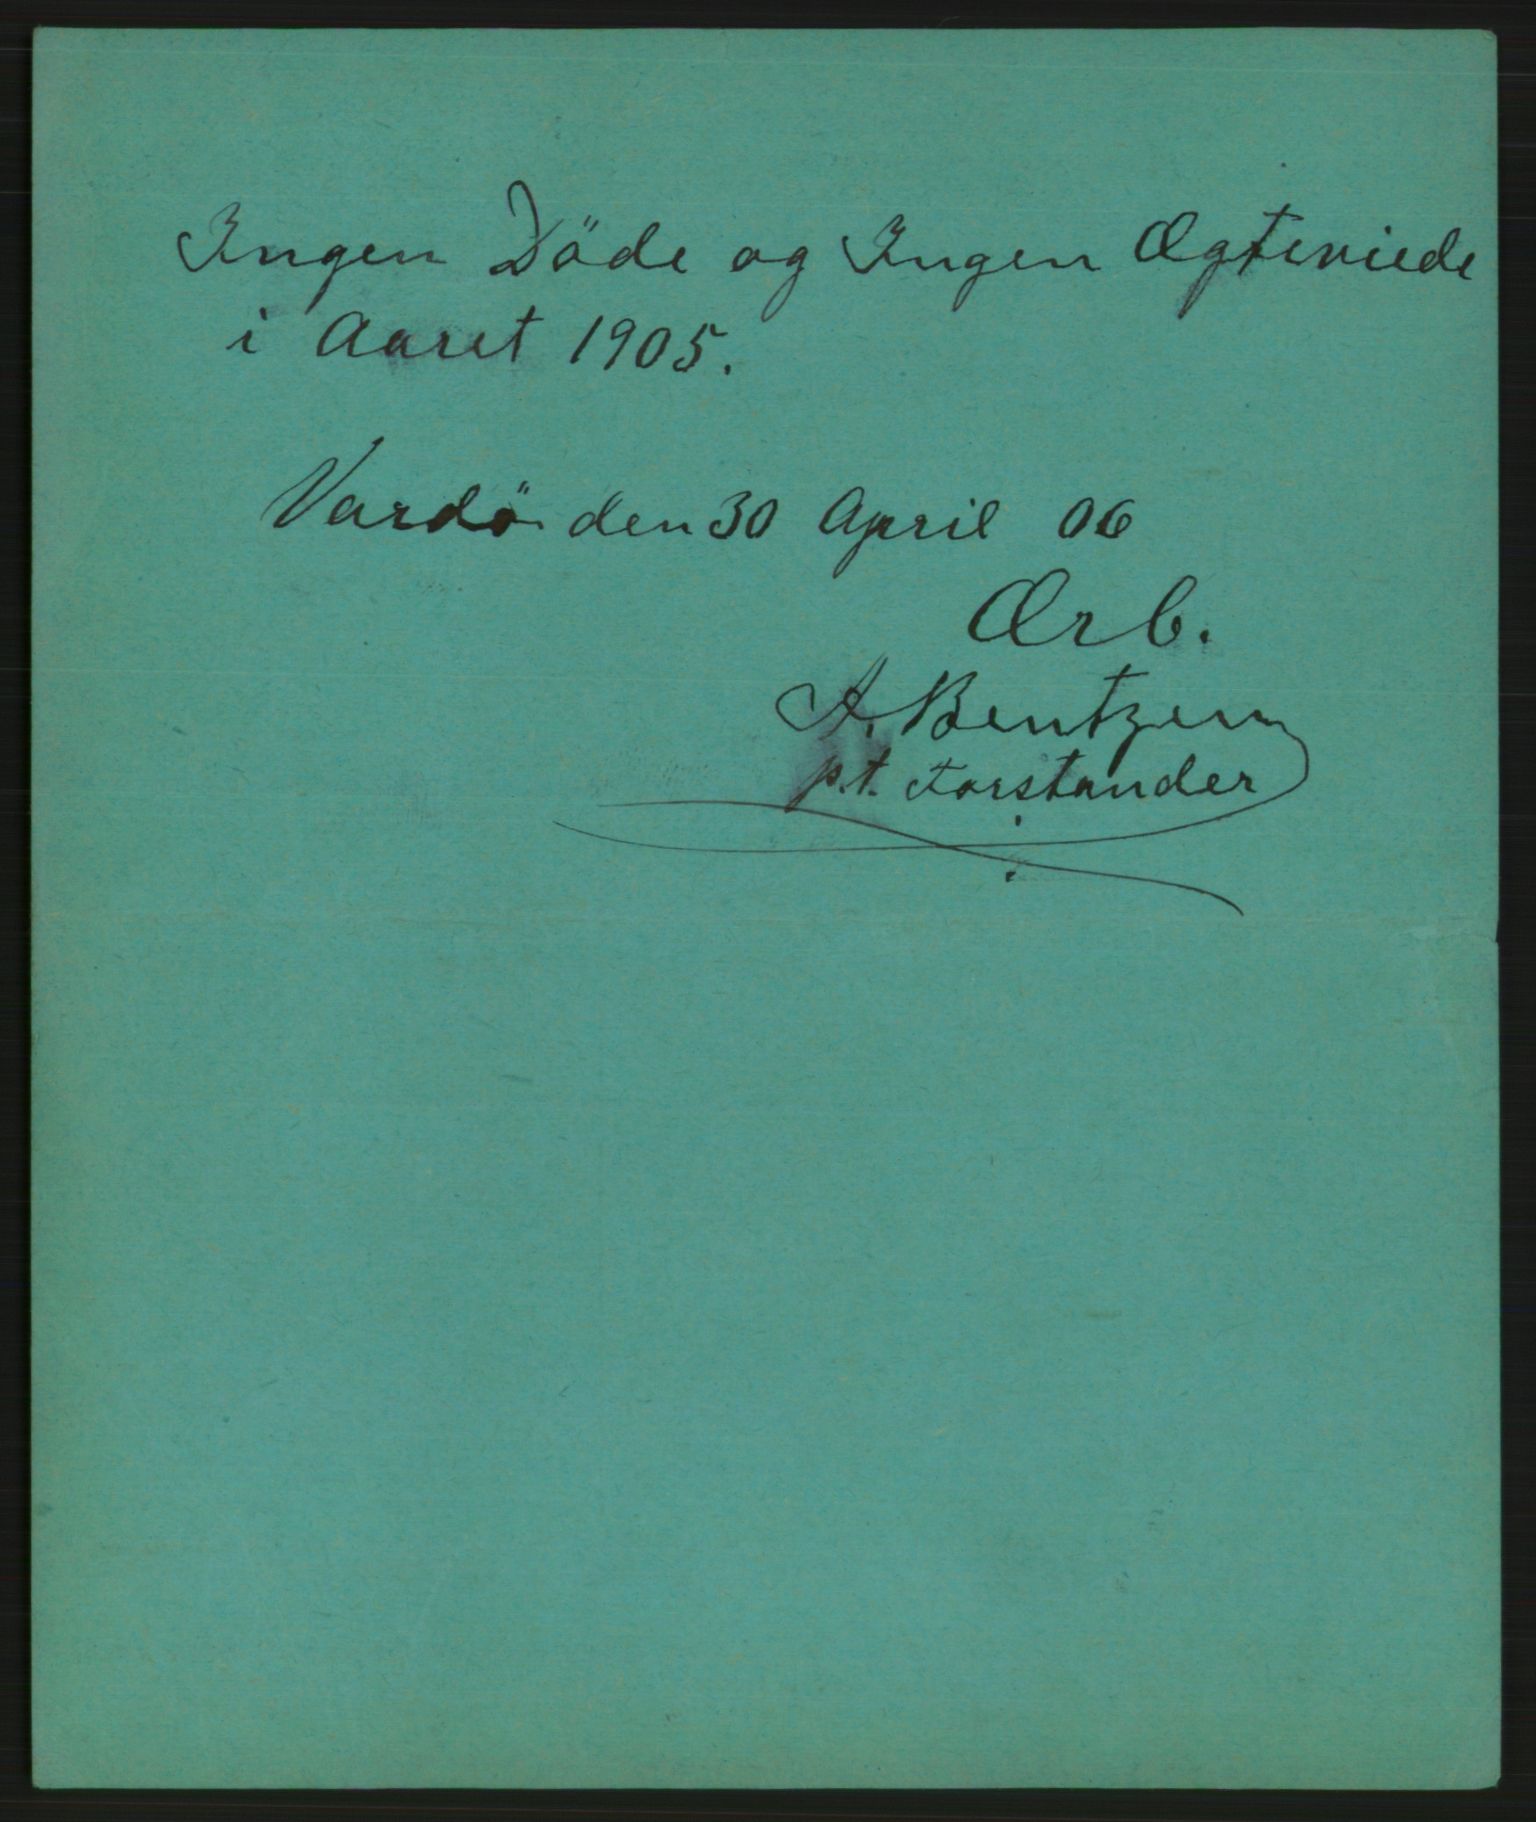 Ingen Döde og Ingen Ægteviede
i Aaret 1905.
Vardö den 30 April 06
Ærb.
A. Bentzen
p.t. Forstander